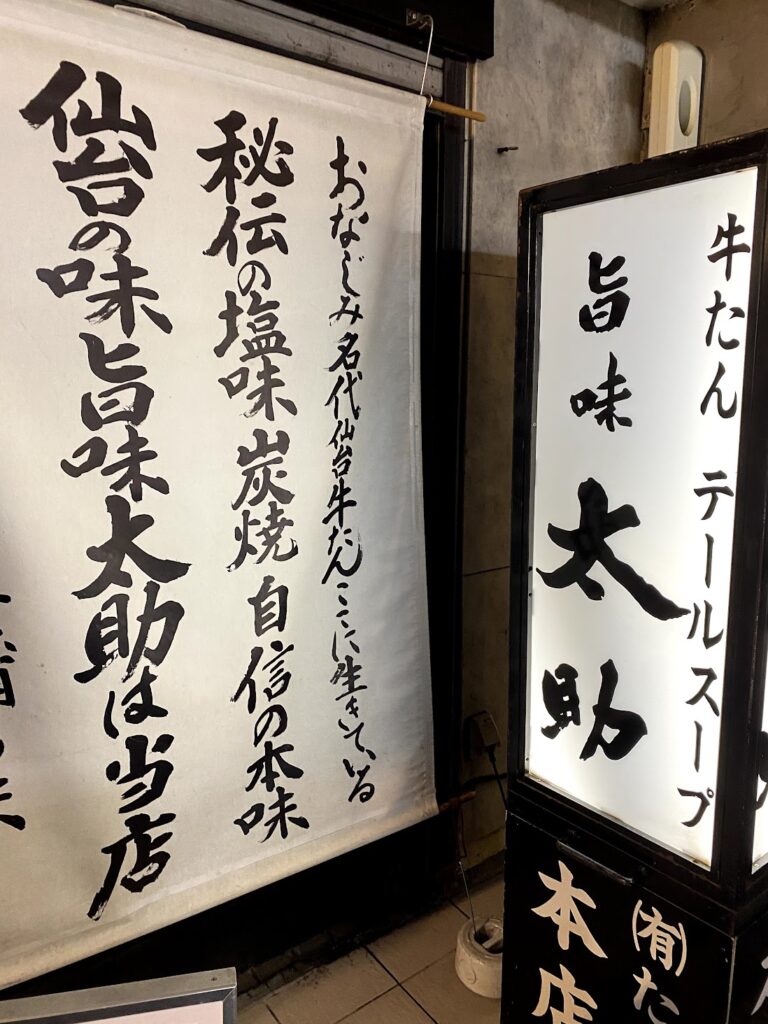 おなじみ名代仙台牛たんここに生きている
秘伝の塩味 炭焼 自信の本味
仙台の味旨味太助は当店
牛たん テールスープ
旨味太助
(有)た
本店